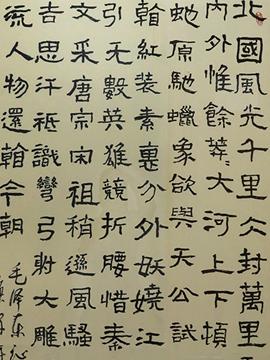 北國風光千里仌封萬里
内外惟餘莽〻大河上下頓
虵原馳蠟象欲與天公試
翰紅裝素裹分外妖嬈江
引无數英雄競折腰惜秦
文采唐宗宋祖稍遜風騷
吉思汗祗識彎弓射大雕
流人物還翰今朝
毛泽东